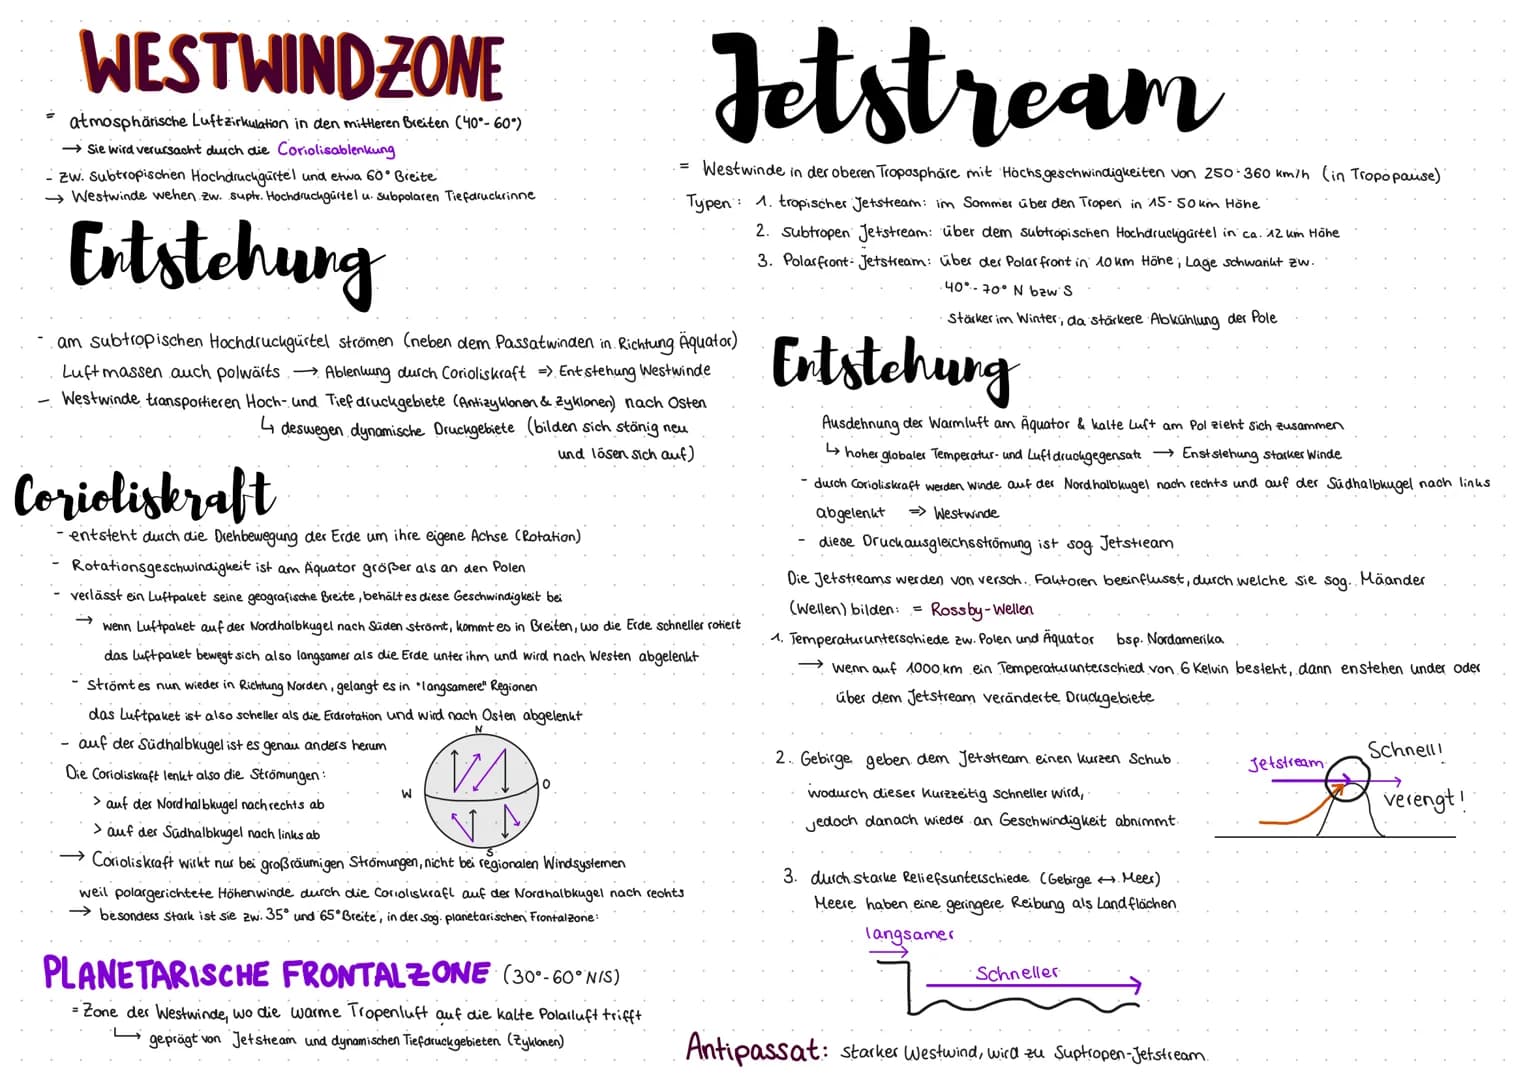 WESTWINDZONE
= atmosphärische Luftzirkulation in den mittleren Breiten (40°-60°)
→ Sie wird verursacht durch die Coriolisablenkung
- zw. Subtropischen Hochdruckgürtel und etwa 60° Breite
→ Westwinde wehen zw. suptr. Hochdruckgürtel u. subpolaren Tiefdruckrinne
Entstehung
- am subtropischen Hochdruckgürtel strömen (neben dem Passatwinden in Richtung Äquator)
Luftmassen auch polwärts → Ablenkung durch Corioliskraft => Entstehung Westwinde
- Westwinde transportieren Hoch- und Tiefdruckgebiete (Antizyklonen & Zyklonen) nach Osten
↳ deswegen dynamische Druckgebiete (bilden sich stänig neu
und lösen sich auf)
Corioliskraft
- entsteht durch die Drehbewegung der Erde um ihre eigene Achse (Rotation)
- Rotationsgeschwindigkeit ist am Äquator größer als an den Polen
- verlässt ein Luftpaket seine geografische Breite, behält es diese Geschwindigkeit bei
→ wenn Luftpaket auf der Nordhalbkugel nach Süden strömt, kommt es in Breiten, wo die Erde schneller rotiert
das Luftpaket bewegt sich also langsamer als die Erde unter ihm und wird nach Westen abgelenkt
- Strömt es nun wieder in Richtung Norden, gelangt es in "langsamere" Regionen
das Luftpaket ist also scheller als die Erdrotation und wird nach Osten abgelenkt
- auf der Südhalbkugel ist es genau anders herum
Die Corioliskraft lenkt also die Strömungen:
> auf der Nordhalbkugel nach rechts ab
> auf der Südhalbkugel nach links ab
N
W
O
S
→ Corioliskraft wirkt nur bei großräumigen Strömungen, nicht bei regionalen Windsystemen
weil polargerichtete Höhenwinde durch die Corioliskraft auf der Nordhalbkugel nach rechts
→ besonders stark ist sie zw. 35° und 65° Breite, in der sog. planetarischen Frontalzone:
PLANETARISCHE FRONTALZONE (30°-60° N/S)
= Zone der Westwinde, wo die warme Tropenluft auf die kalte Polarluft trifft
↳ geprägt von Jetstream und dynamischen Tiefdruckgebieten (Zyklonen)
Jetstream
= Westwinde in der oberen Troposphäre mit Höchsgeschwindigkeiten von 250-360 km/h (in Tropopause)
Typen: 1. tropischer Jetstream: im Sommer über den Tropen in 15-50 km Höhe
2. Subtropen Jetstream: über dem subtropischen Hochdruckgürtel in ca. 12 km Höhe
3. Polarfront-Jetstream: über der Polarfront in 10 km Höhe, Lage schwankt zw.
40°-70° N bzw S
Stärker im Winter, da stärkere Abkühlung der Pole
Entstehung
Ausdehnung der Warmluft am Äquator & kalte Luft am Pol zieht sich zusammen
↳ hoher globaler Temperatur- und Luftdruckgegensatz → Enststehung starker Winde
- durch Corioliskraft werden Winde auf der Nordhalbkugel nach rechts und auf der Südhalbkugel nach links
abgelenkt => Westwinde
- diese Druckausgleichsströmung ist sog. Jetstream
Die Jetstreams werden von versch. Faktoren beeinflusst, durch welche sie sog. Mäander
(Wellen) bilden: = Rossby-Wellen
1. Temperaturunterschiede zw. Polen und Äquator bsp. Nordamerika
→ Wenn auf 1000 km ein Temperaturunterschied von 6 Kelvin besteht, dann enstehen under oder
über dem Jetstream veränderte Druckgebiete
2. Gebirge geben dem Jetstream einen kurzen Schub
wodurch dieser kurzzeitig schneller wird,
jedoch danach wieder an Geschwindigkeit abnimmt
Jetstream
Schnell!
verengt!
3. durch starke Reliefsunterschiede (Gebirge ↔ Meer)
Meere haben eine geringere Reibung als Landflächen
langsamer
Schneller
Antipassat: starker Westwind, wird zu Suptropen-Jetstream